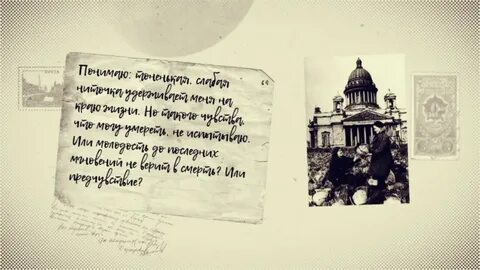 Понимаю: тоненькая, слабая
ниточка удерживает меня на
краю жизни. Но такого чувства,
что могу умереть, не испытываю.
Или молодость до последних
мгновений не верит в смерть? Или
предчувствие?
ПОЧТА